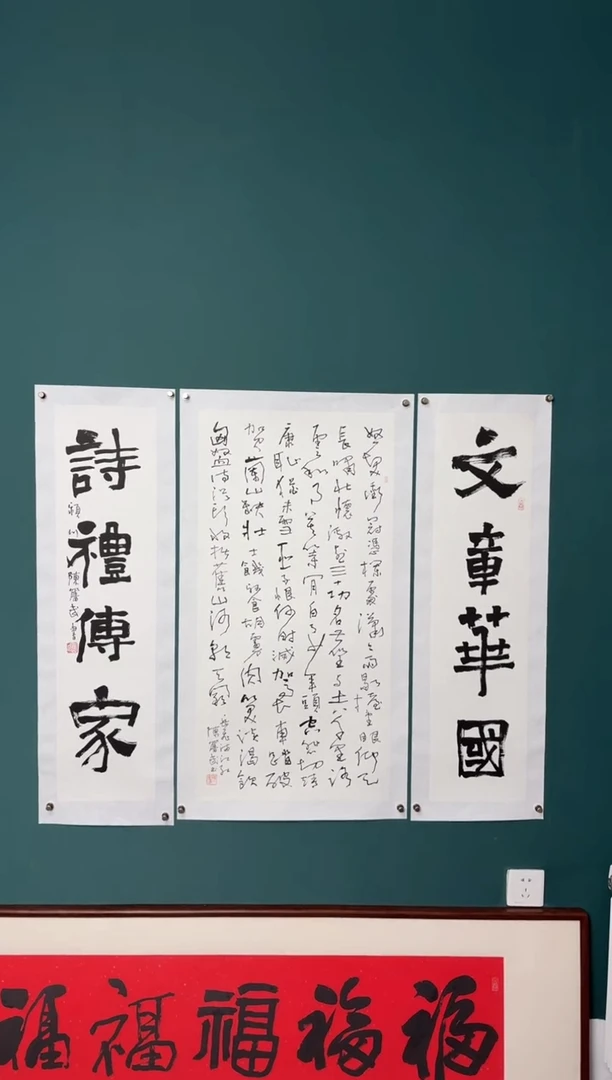 文章華國
怒髮衝冠憑欄處瀟瀟雨歇抬望眼仰天
長嘯壯懷激烈三十功名塵与土八千里路
雲和月莫等閒白了少年頭空悲切靖
康恥猶未雪臣子恨何時滅駕長車踏破
賀蘭山缺壯士飢餐胡虜肉笑談渴飲
匈奴血待從頭收拾舊山河朝天闕
岳飛滿江紅
詩禮傳家
福福福福福